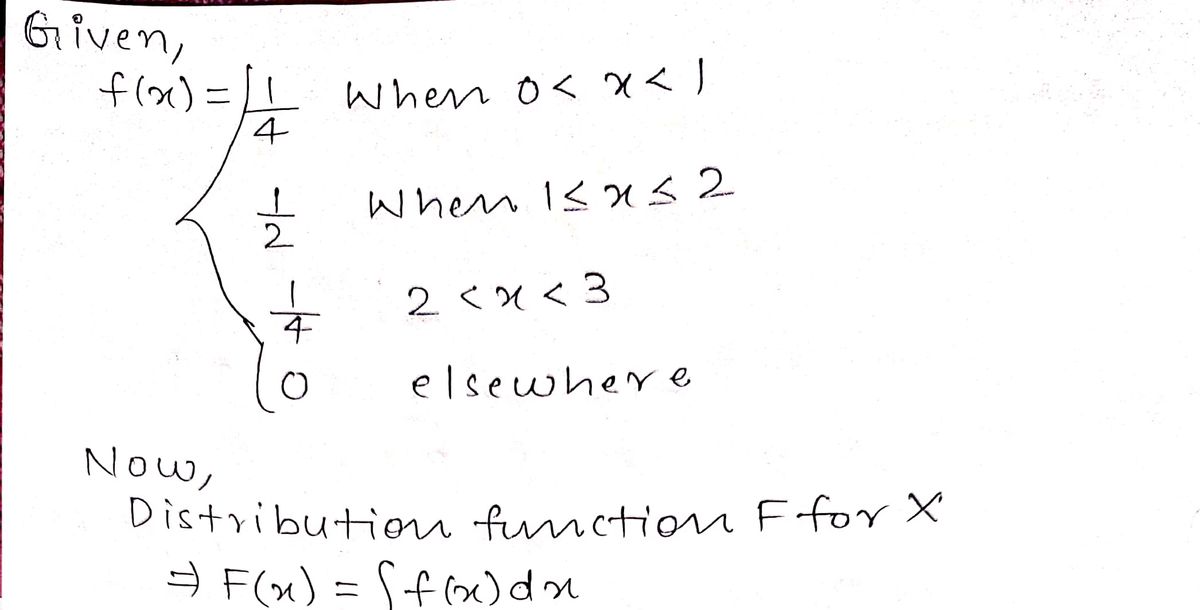 Given,
f(x) = { 1/4 when 0 < x < 1
1/2 when 1 ≤ x ≤ 2
1/4 2 < x < 3
0 elsewhere
Now,
Distribution function F for X
⇒ F(x) = ∫ f(x) dx